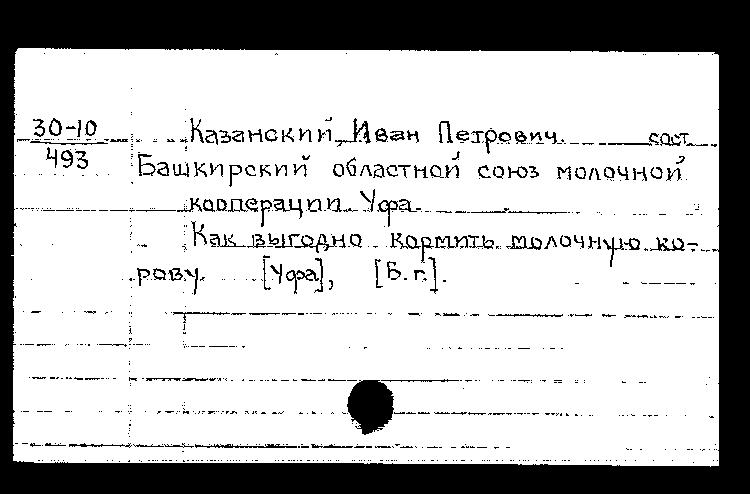 30-10 Казанский, Иван Петрович. сост.
493 Башкирский областной союз молочной
кооперации. Уфа.
Как выгодно кормить молочную ко-
рову. [Уфа], [Б. г.].